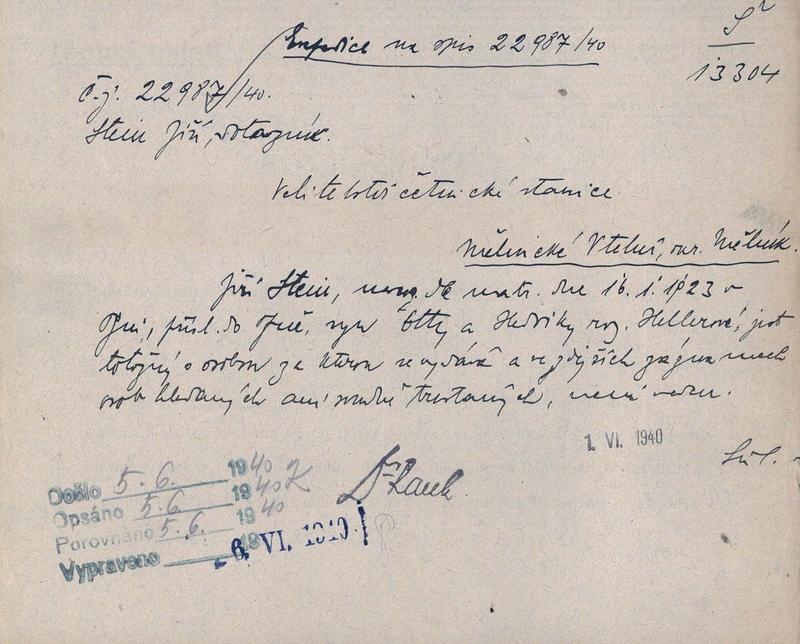 Expedice na opis 22987/40
Sr
13304
č.j. 22987/40.
Stein Jiří, dotazník.
Velitelství četnické stanice
Mělnické Vtelno, okr. Mělník.
Jiří Stein, nar. dle matr. dne 16. 1. 1923 v
přísl. do syn Otty a Hedviky roz. Hellerové, jest
totožný s osobou za kterou se vydává a v zdejších záznamech
osob hledaných ani soudně trestaných, není veden.
1. VI. 1940
Došlo 5. 6. 1940
Opsáno 5. 6. 1940
Porovnáno 5. 6. 1940
Vypraveno 19
6. VI. 1940